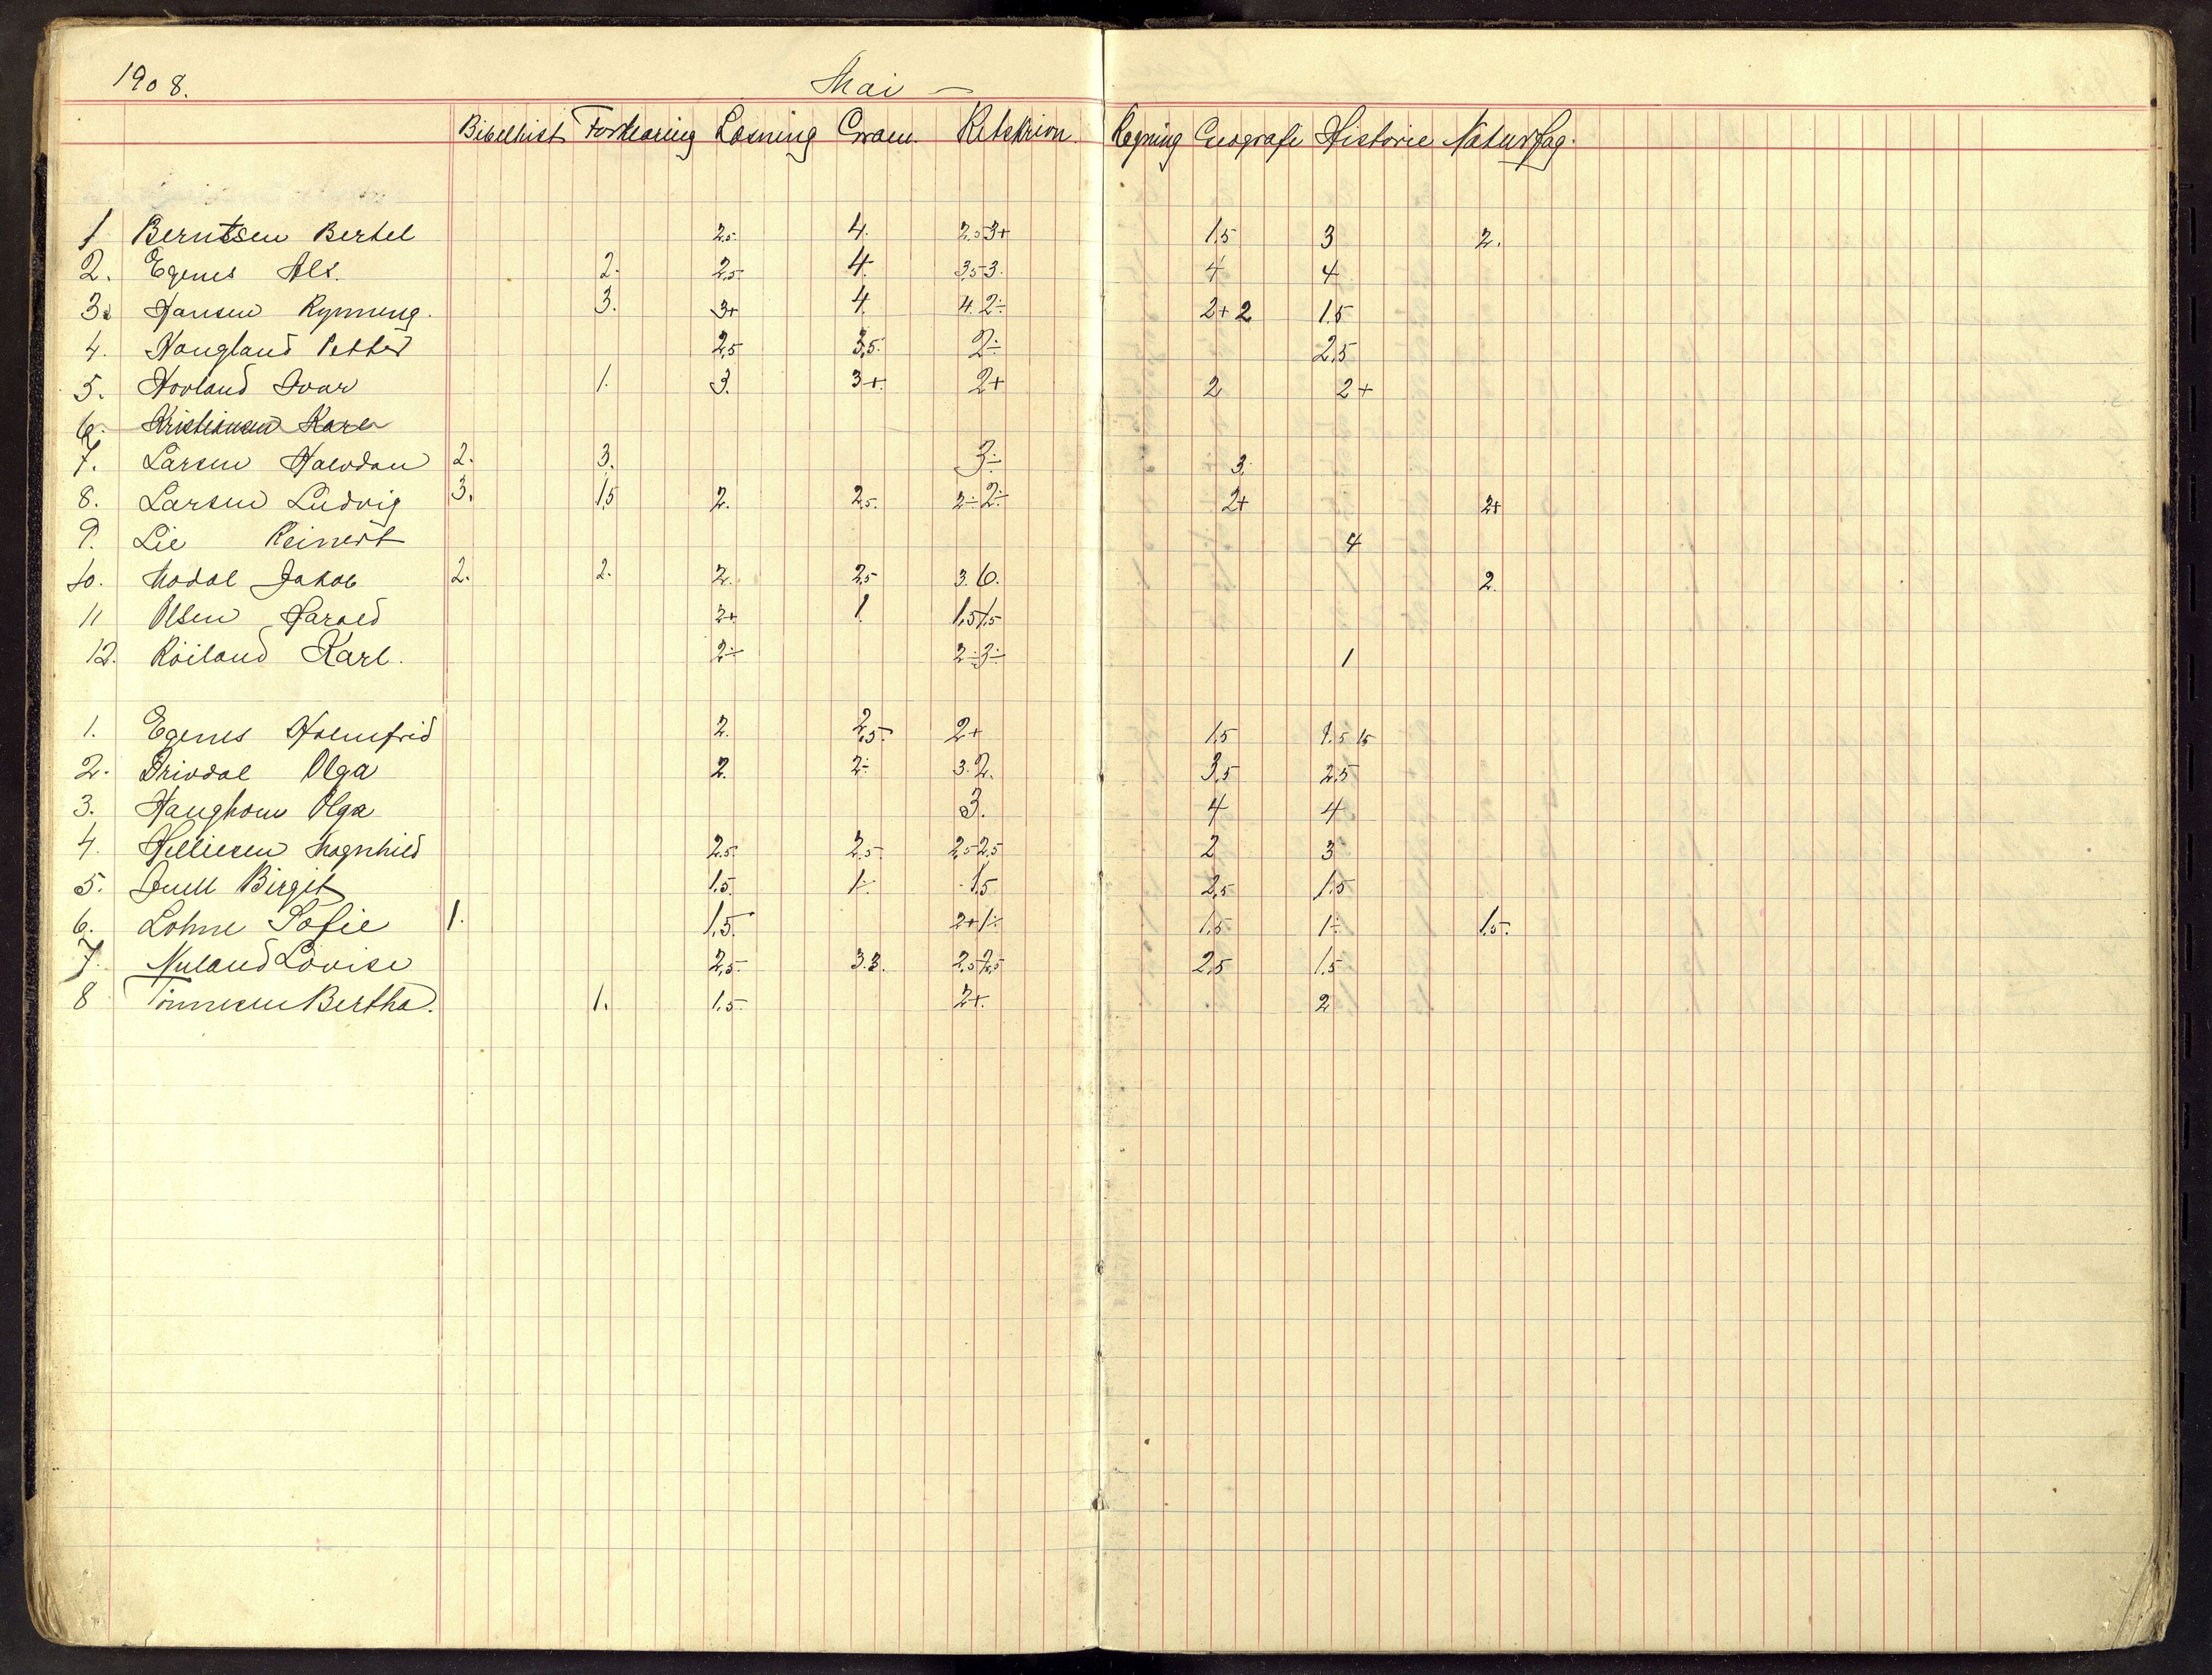 1908. Mai —
Bibelhist Forklaring Læsning Gram. Retskrivn. Regning Geografi Historie Naturfag.
1 Berntsen Bertel 2,5. 4. 2,5 3+ 1,5 3 2.
2. Egenes Als. 2. 2,5. 4. 3,5 3. 4 4
3. Hansen Rynning. 3. 3+ 4. 4. 2÷ 2+ 2 1.5
4. Haugland Petter 2,5 3,5. 2÷ 2,5
5. Hovland Ivar 1. 3. 3+. 2+ 2 2+
6. Kristiansen Kare
7. Larsen Halvdan 2. 3. 3÷ 3.
8. Larsen Ludvig 3. 1,5 2. 2,5. 2÷ 2÷ 2+ 2+
9. Lie Reinert 4
10. Modal Jakob 2. 2. 2. 2,5 3. 6. 2.
11 Olsen Harald 2+ 1. 1,5 1,5
12. Röiland Karl. 2÷ 2÷ 3÷ 1
1. Egenes Holmfrid 2. 2,5. 2+ 1,5 1.5 1,5
2. Drivdal Olga 2. 2÷ 3. 2. 3,5 2,5
3. Haughom Olga 3. 4 4
4. Helliesen Magnhild 2,5. 2,5. 2,5 2,5 2 3
5. Juell Birgit 1,5. 1÷. 1,5 2,5 1.5
6. Lohne Sofie 1. 1,5. 2+ 1÷ 1,5 1÷ 1,5.
7. Nuland Lovise 2,5. 3.3. 2,5 2,5 2,5 1.5
8 Tönnesen Bertha. 1. 1,5. 2+. 2